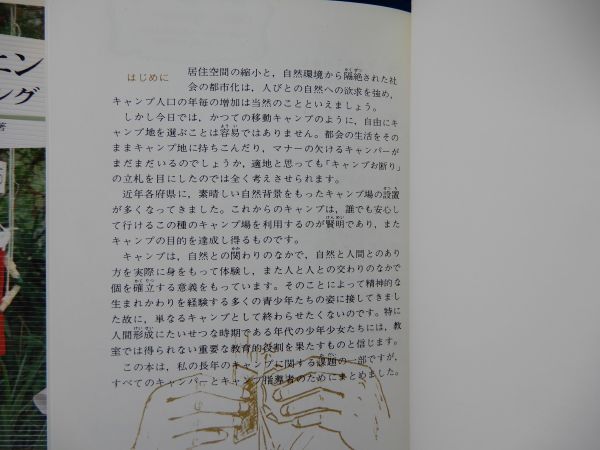 ニン
ング
著
はじめに
居住空間の縮小と，自然環境から隔絶された社
会の都市化は，人びとの自然への欲求を強め，
キャンプ人口の年毎の増加は当然のことといえましょう。
しかし今日では，かつての移動キャンプのように，自由にキ
ャンプ地を選ぶことは容易ではありません。都会の生活をその
ままキャンプ地に持ちこんだり，マナーの欠けるキャンパーが
まだまだいるのでしょうか，適地と思っても「キャンプお断り」
の立札を目にしたのでは全く考えさせられます。
近年各府県に，素晴しい自然背景をもったキャンプ場の設置
が多くなってきました。これからのキャンプは，誰でも安心し
て行けるこの種のキャンプ場を利用するのが賢明であり，また
キャンプの目的を達成し得るものです。
キャンプは，自然との関わりのなかで，自然と人間とのあり
方を実際に身をもって体験し，また人と人との交わりのなかで
個を確立する意義をもっています。そのことによって精神的な
生まれかわりを経験する多くの青少年たちの姿に接してきまし
た故に，単なるキャンプとして終わらせたくないのです。特に
人間形成にたいせつな時期である年代の少年少女たちには，教
室では得られない重要な教育的役割を果たすものと信じます。
この本は，私の長年のキャンプに関する課題の一部ですが，
すべてのキャンパーとキャンプ指導者のためにまとめました。